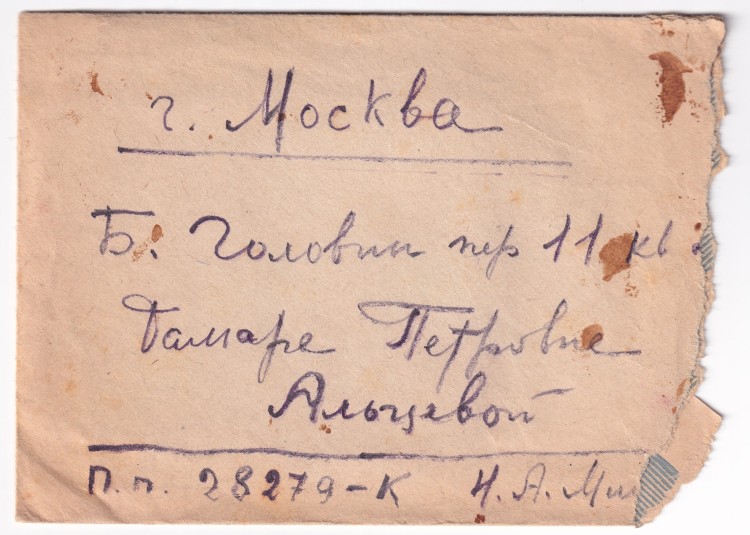 г. Москва
Б. Головин пер 11 кв
Тамаре Петровне
Альцевой
П.п. 28279-К Н. А.